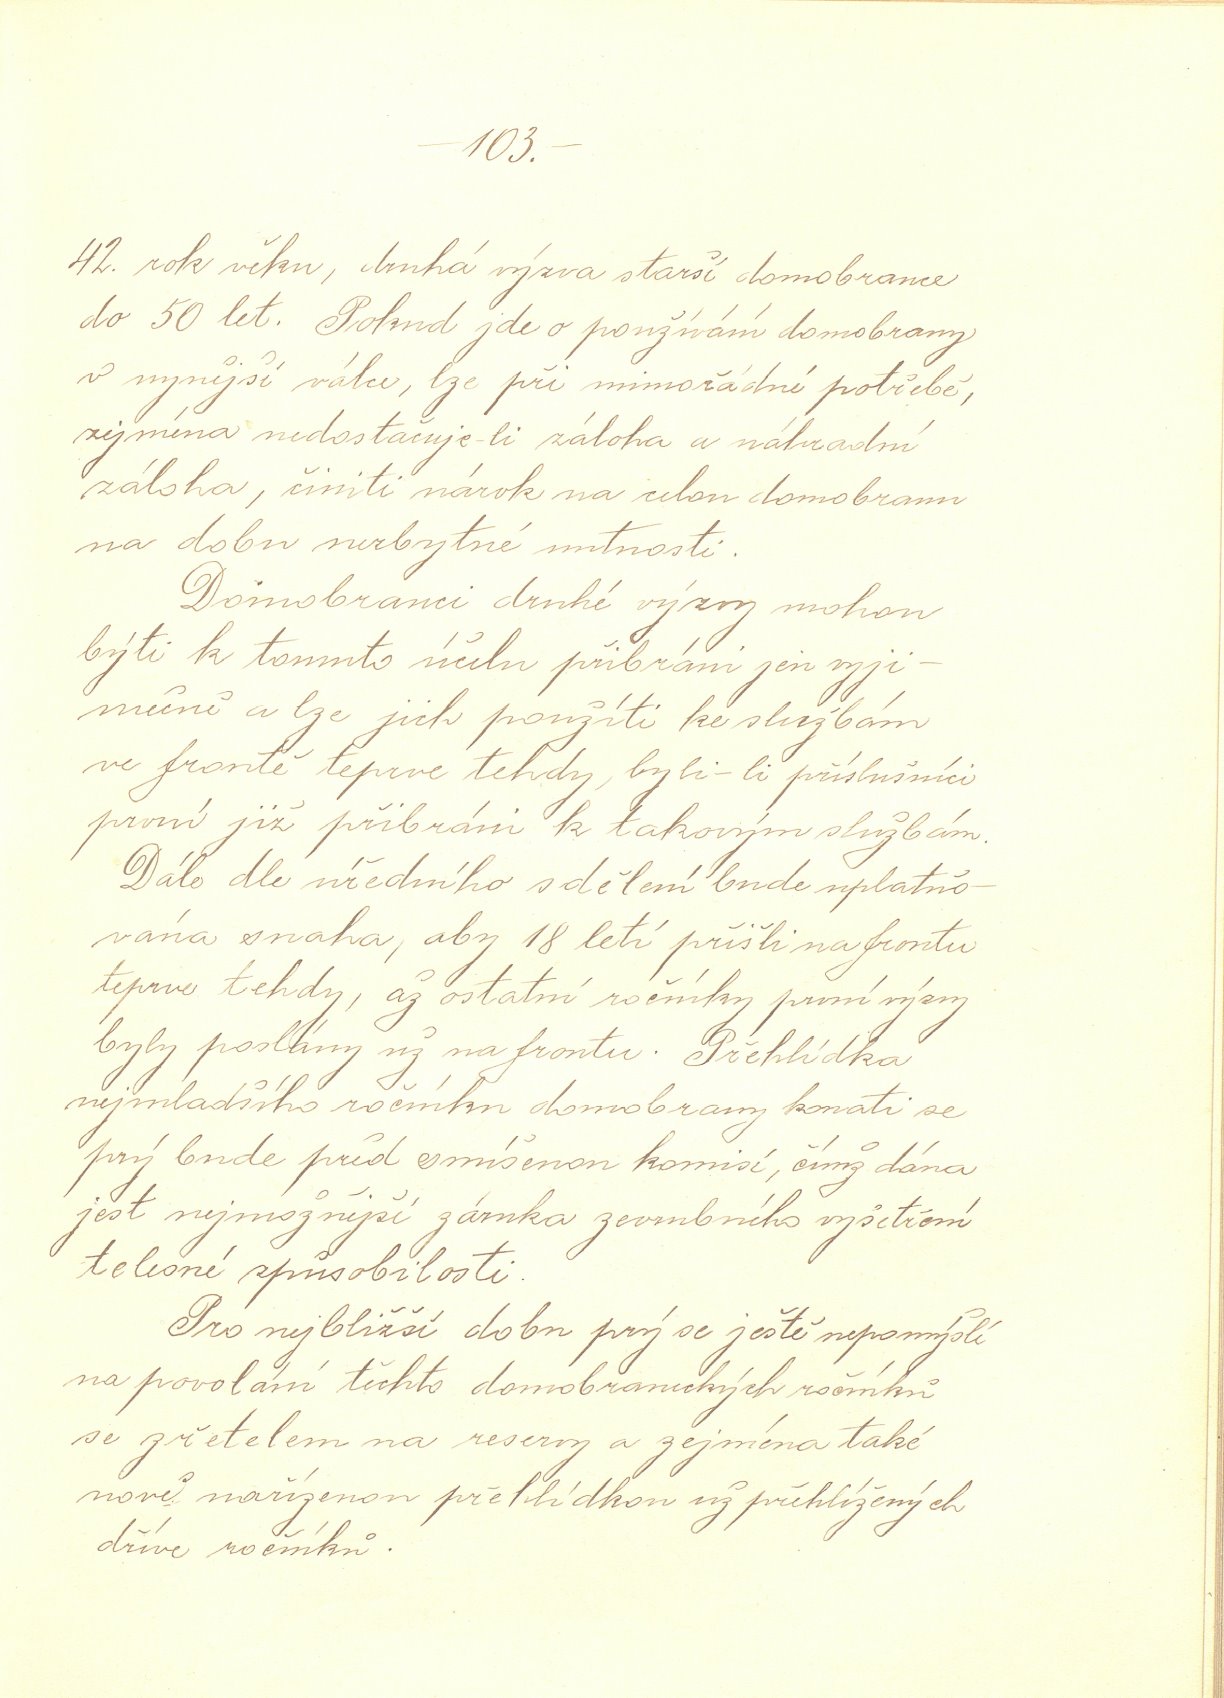 —103.—
42. rok věku, druhá výzva starší domobrance
do 50 let. Pokud jde o používání domobrany
v nynější válce, lze při mimořádné potřebě,
zejména nedostačuje-li záloha a náhradní
záloha, činiti nárok na celou domobranu
na dobu nezbytné nutnosti.
Domobranci druhé výzvy mohou
býti k tomuto účelu přibráni jen vyji-
mečně a lze jich použíti ke službám
ve frontě teprve tehdy, byli-li příslušníci
první již přibráni k takovým službám.
Dále dle úředního sdělení bude uplatňo-
vána snaha, aby 18 letí přišli na frontu
teprve tehdy, až ostatní ročníky první výzvy
byly poslány už na frontu. Přehlídka
nejmladšího ročníku domobrany konati se
prý bude před smíšenou komisí, čímž dána
jest nejmožnější záruka zevrubného vyšetření
telesné způsobilosti.
Pro nejbližší dobu prý se ještě nepomýšlí
na povolání těchto domobraneckých ročníků
se zřetelem na reservy a zejména také
nově nařízenou přehlídkou už přehlížených
dříve ročníků.